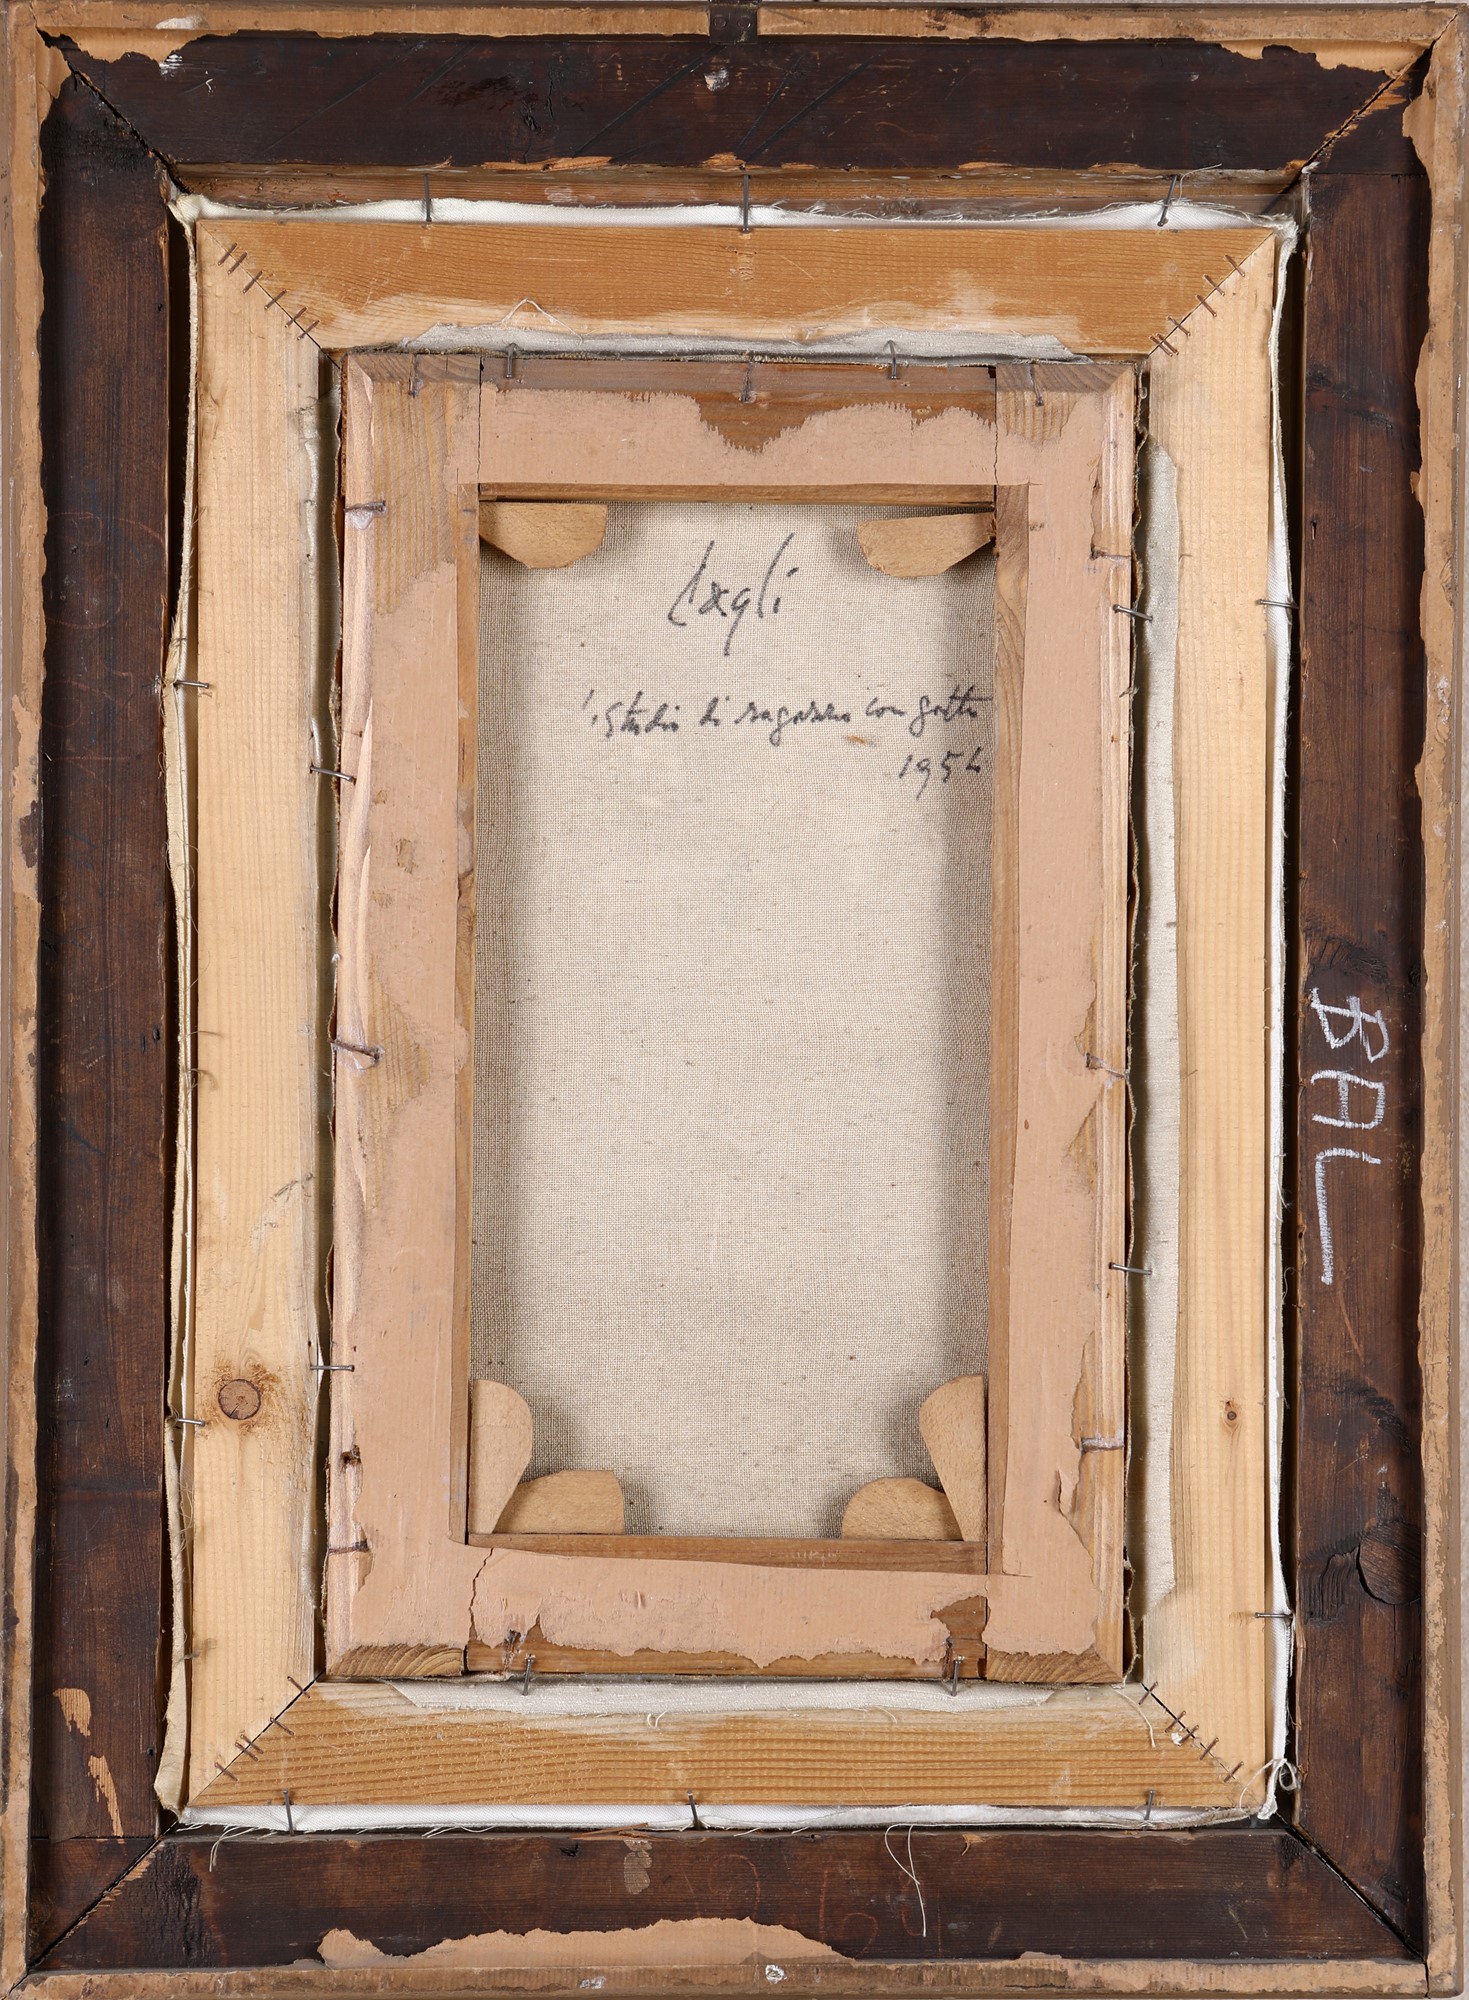 Cagli
'Studio di ragazzo con gatto
1954
BAL